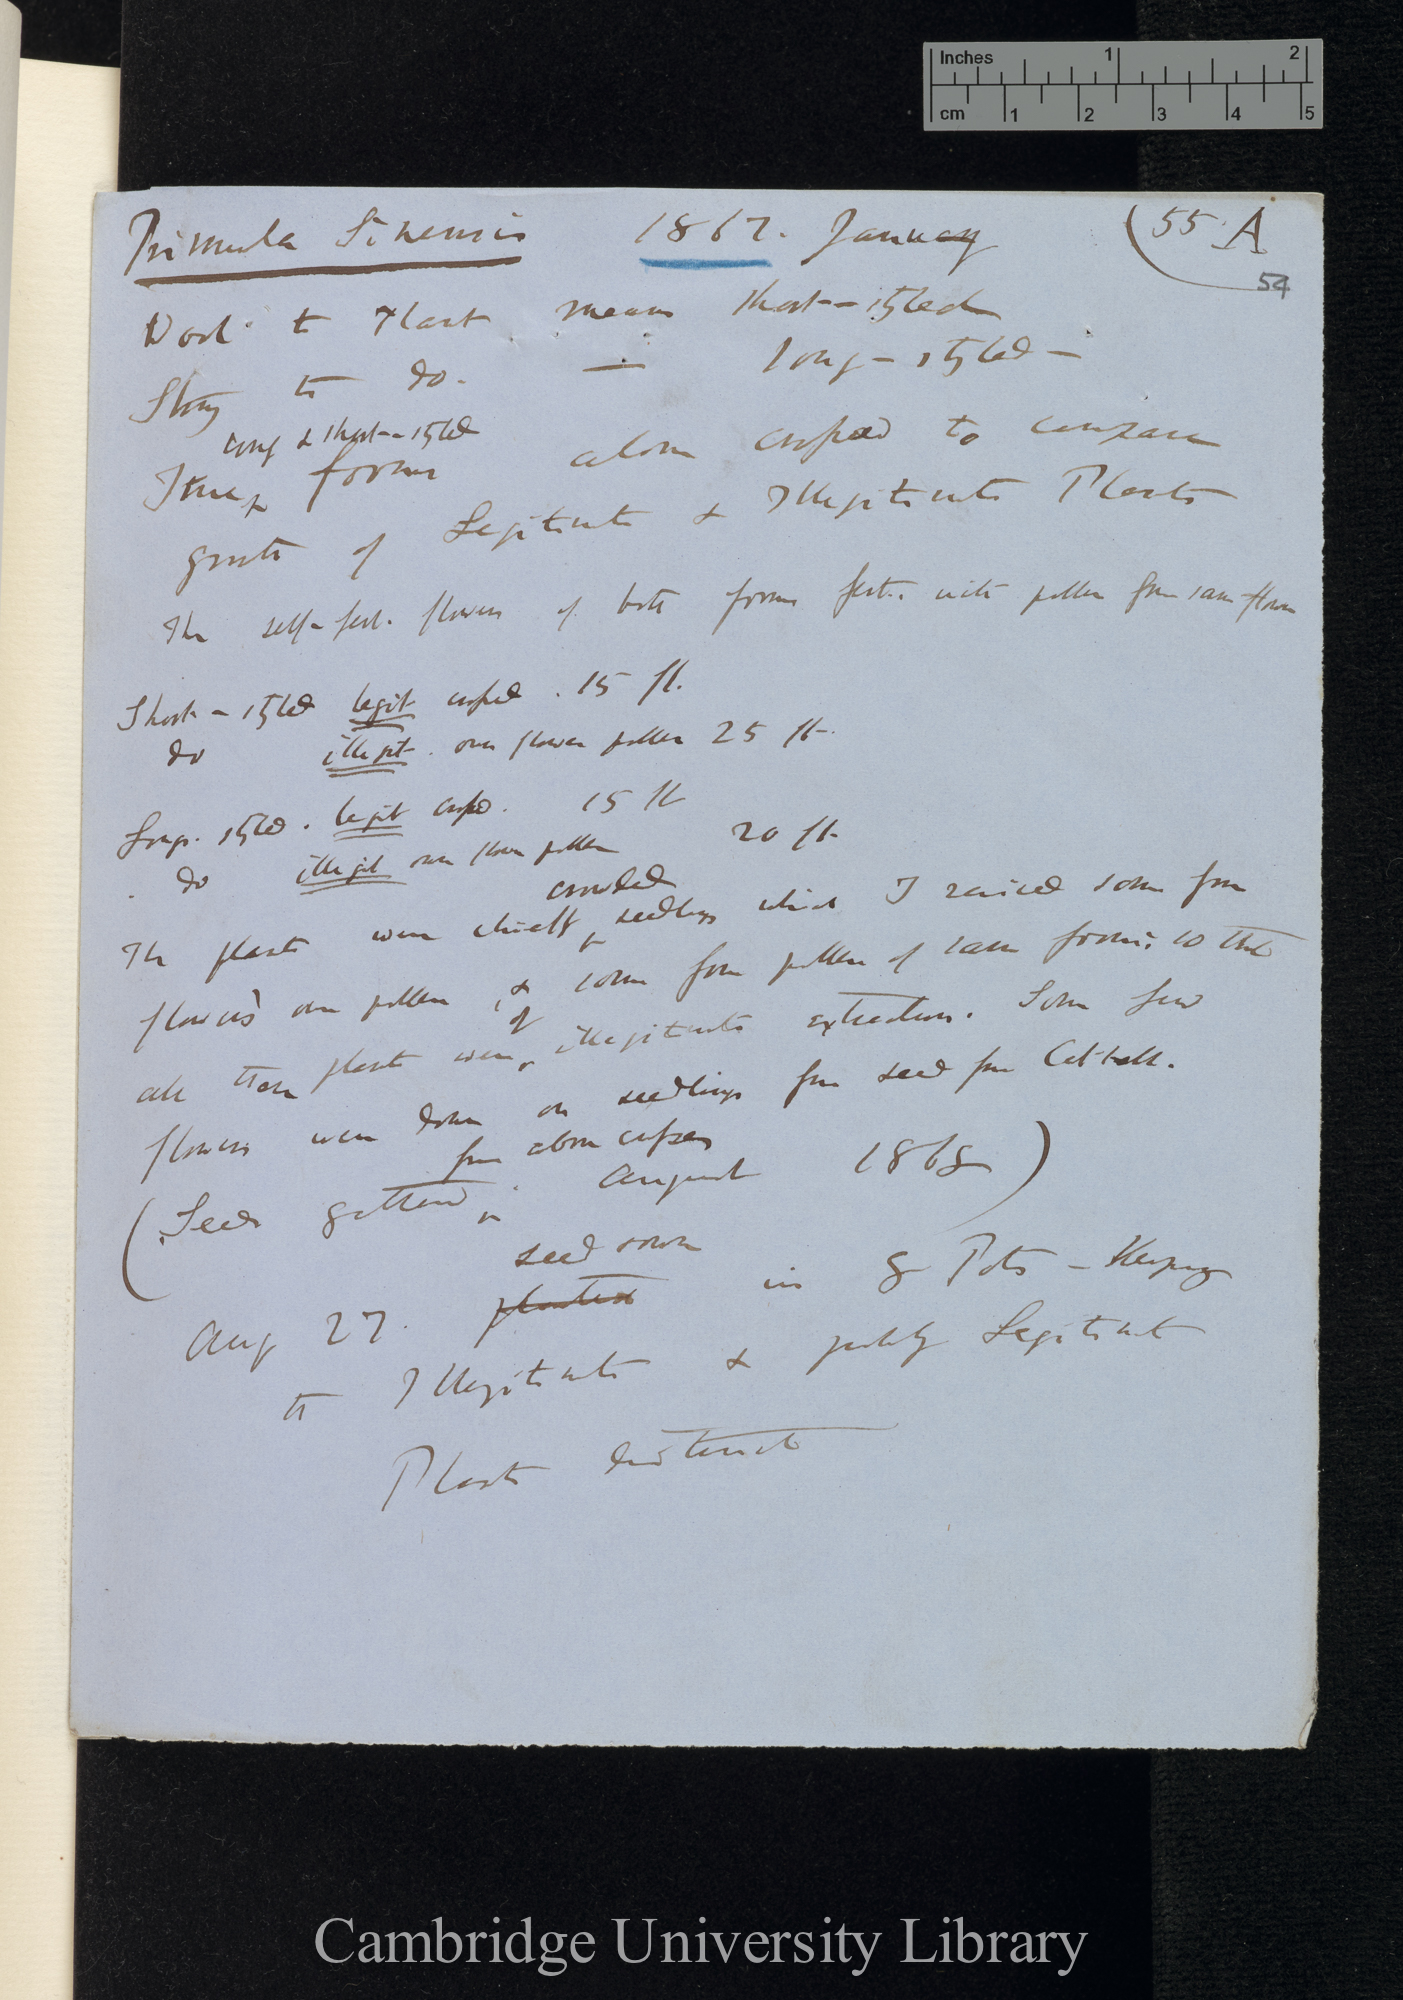 Inches 1 2
cm 1 2 3 4 5
Primula Sinensis 1867. January (55 A
54
Wool to Plant means short-styled
String to do. — long-styled —
long & short-styled
These forms alone crossed to compare
growth of Legitimate & Illegitimate Plants
The self-fert. flowers of both forms fert. with pollen from same flower
Short-styled legit crossed . 15 fl.
do illegit. own flower pollen 25 fl.
Long. styled . legit crossed. 15 fl
do illegit own flower pollen 20 fl.
crowded
The plants were chiefly seedlings which I raised some from
flowers own pollen , & some from pollen of same form; so that
of
all these plants were illegitimate extraction. Some few
flowers were down on seedlings from seed from Cattell.
from above crosses
(Seeds gathered in August 1868)
seed sown
Aug 27. planted in 8 Pots — Keeping
to Illegitimate & partly Legitimate
Plants distinct
Cambridge University Library